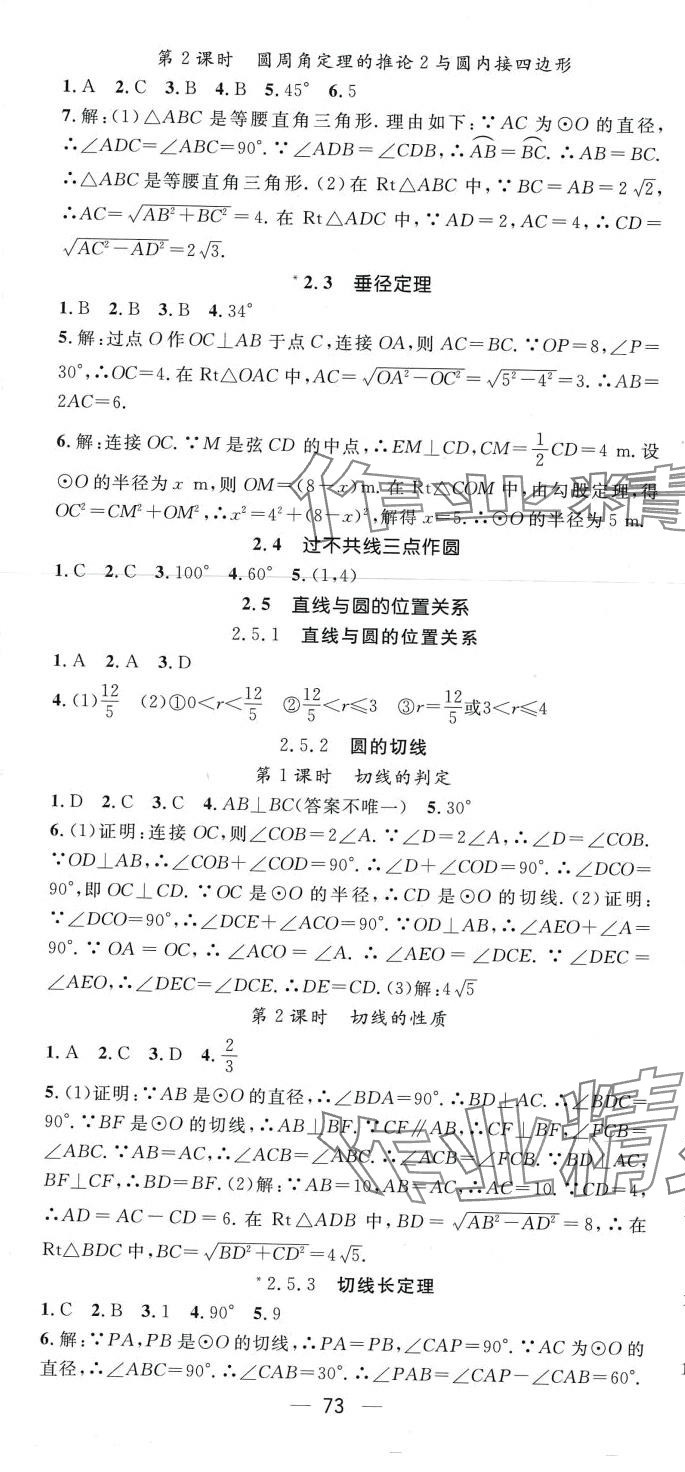 第2课时 圆周角定理的推论2与圆内接四边形
1. A 2. C 3. B 4. B 5. 45° 6. 5
7. 解:(1)△ABC 是等腰直角三角形. 理由如下:∵AC 为⊙O 的直径,
∴∠ADC=∠ABC=90°. ∵∠ADB=∠CDB, ∴⌒AB=⌒BC. ∴AB=BC.
∴△ABC 是等腰直角三角形. (2)在 Rt△ABC 中, ∵BC=AB=2√2,
∴AC=√(AB²+BC²)=4. 在 Rt△ADC 中, ∵AD=2, AC=4, ∴CD=
√(AC²-AD²)=2√3.
*2.3 垂径定理
1. B 2. B 3. B 4. 34°
5. 解:过点 O 作 OC⊥AB 于点 C, 连接 OA, 则 AC=BC. ∵OP=8, ∠P=
30°, ∴OC=4. 在 Rt△OAC 中, AC=√(OA²-OC²)=√(5²-4²)=3. ∴AB=
2AC=6.
6. 解:连接 OC. ∵M 是弦 CD 的中点, ∴EM⊥CD, CM=1/2CD=4 m. 设
⊙O 的半径为 x m, 则 OM=(8-x)m. 在 Rt△COM 中, 由勾股定理, 得
OC²=CM²+OM², ∴x²=4²+(8-x)², 解得 x=5. ∴⊙O 的半径为 5 m.
2.4 过不共线三点作圆
1. C 2. C 3. 100° 4. 60° 5. (1,4)
2.5 直线与圆的位置关系
2.5.1 直线与圆的位置关系
1. A 2. A 3. D
4. (1)12/5 (2)①0<r<12/5 ②12/5<r≤3 ③r=12/5或3<r≤4
2.5.2 圆的切线
第1课时 切线的判定
1. D 2. C 3. C 4. AB⊥BC(答案不唯一) 5. 30°
6. (1)证明:连接 OC, 则∠COB=2∠A. ∵∠D=2∠A, ∴∠D=∠COB.
∵OD⊥AB, ∴∠COB+∠COD=90°. ∴∠D+∠COD=90°. ∴∠DCO=
90°, 即 OC⊥CD. ∵OC 是⊙O 的半径, ∴CD 是⊙O 的切线. (2)证明:
∵∠DCO=90°, ∴∠DCE+∠ACO=90°. ∵OD⊥AB, ∴∠AEO+∠A=
90°. ∵OA=OC, ∴∠ACO=∠A. ∴∠AEO=∠DCE. ∵∠DEC=
∠AEO, ∴∠DEC=∠DCE. ∴DE=DC. (3)解:4√5
第2课时 切线的性质
1. A 2. C 3. D 4. 2/3
5. (1)证明:∵AB 是⊙O 的直径, ∴∠BDA=90°. ∴BD⊥AC. ∴∠BDC=
90°. ∵BF 是⊙O 的切线, ∴AB⊥BF. ∵CF∥AB, ∴CF⊥BF, ∠FCB=
∠ABC. ∵AB=AC, ∴∠ACB=∠ABC. ∴∠ACB=∠FCB. ∵BD⊥AC,
BF⊥CF, ∴BD=BF. (2)解:∵AB=10, AB=AC, ∴AC=10. ∵CD=4,
∴AD=AC-CD=6. 在 Rt△ADB 中, BD=√(AB²-AD²)=8, ∴在
Rt△BDC 中, BC=√(BD²+CD²)=4√5.
*2.5.3 切线长定理
1. C 2. B 3. 1 4. 90° 5. 9
6. 解:∵PA, PB 是⊙O 的切线, ∴PA=PB, ∠CAP=90°. ∵AC 为⊙O 的
直径, ∴∠ABC=90°. ∴∠CAB=30°. ∴∠PAB=∠CAP-∠CAB=60°.
— 73 —
作业精
作业精